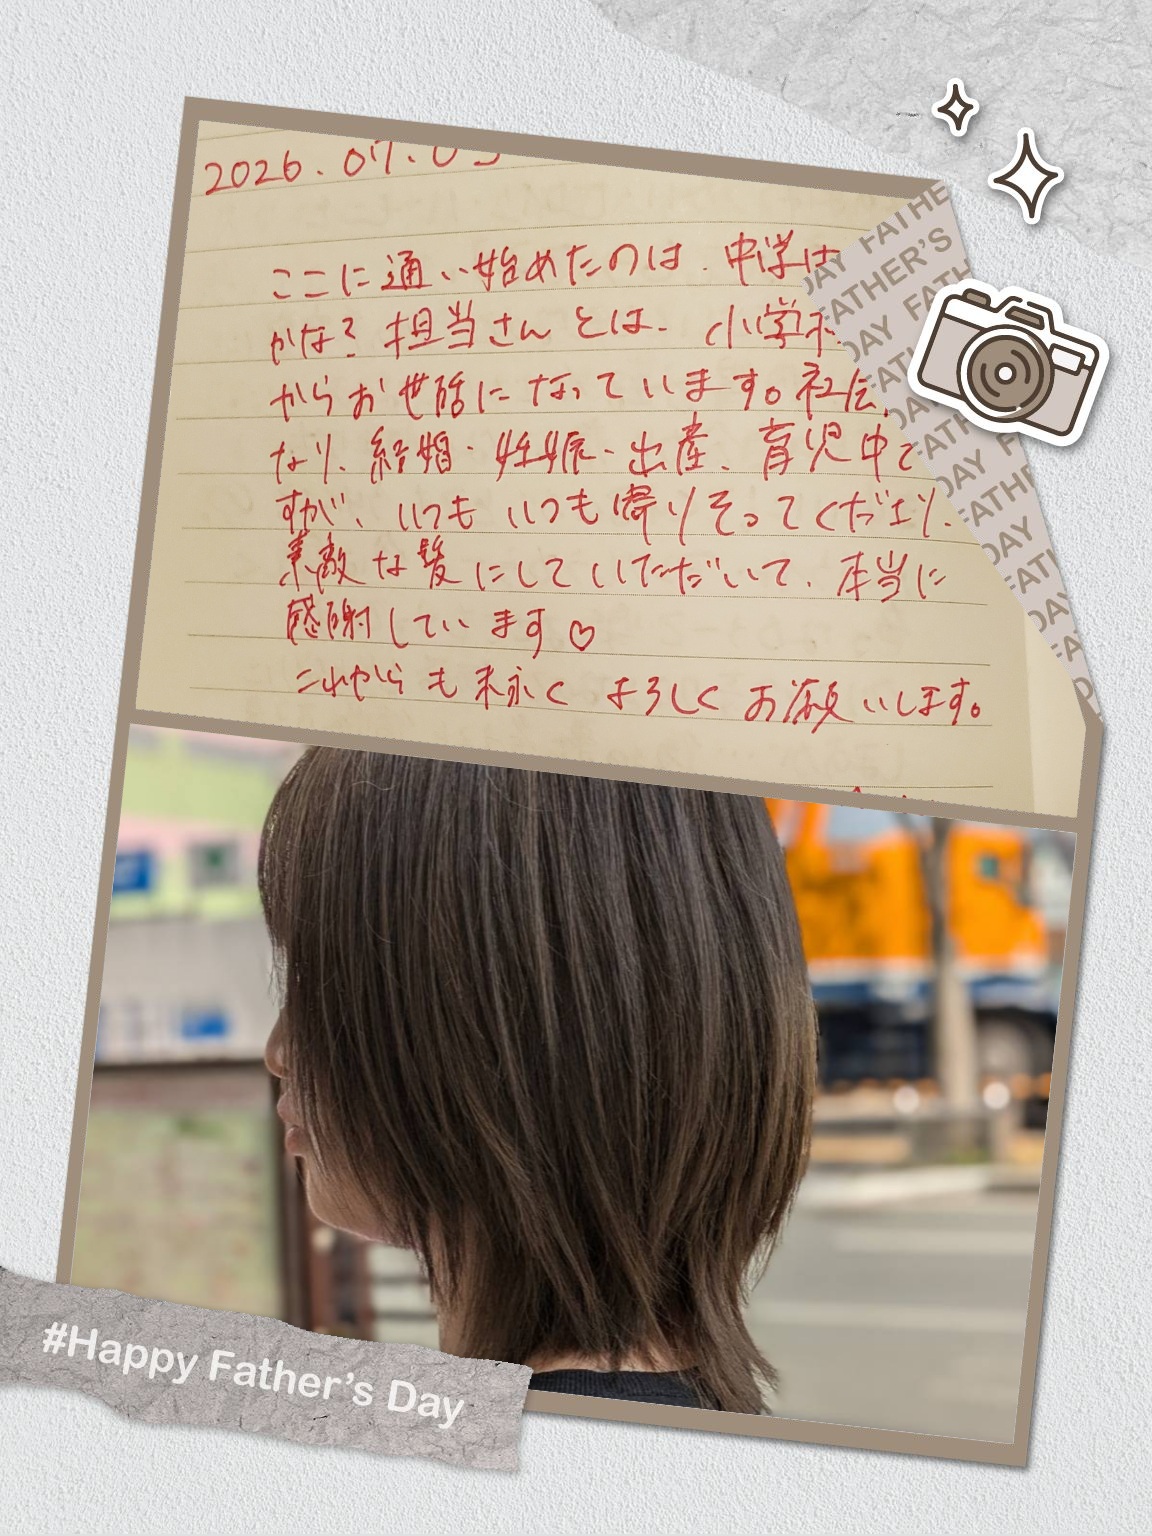 2026.07.05
ここに通い始めたのは、中学
かな？担当さんとは、小学校
からお世話になっています。社会
なり、結婚・妊娠・出産、育児中で
すが、いつもいつも寄りそってくださり、
素敵な髪にしていただいて、本当に
感謝しています♡
これからも末永くよろしくお願いします。
FATHER'S
DAY
#Happy Father's Day